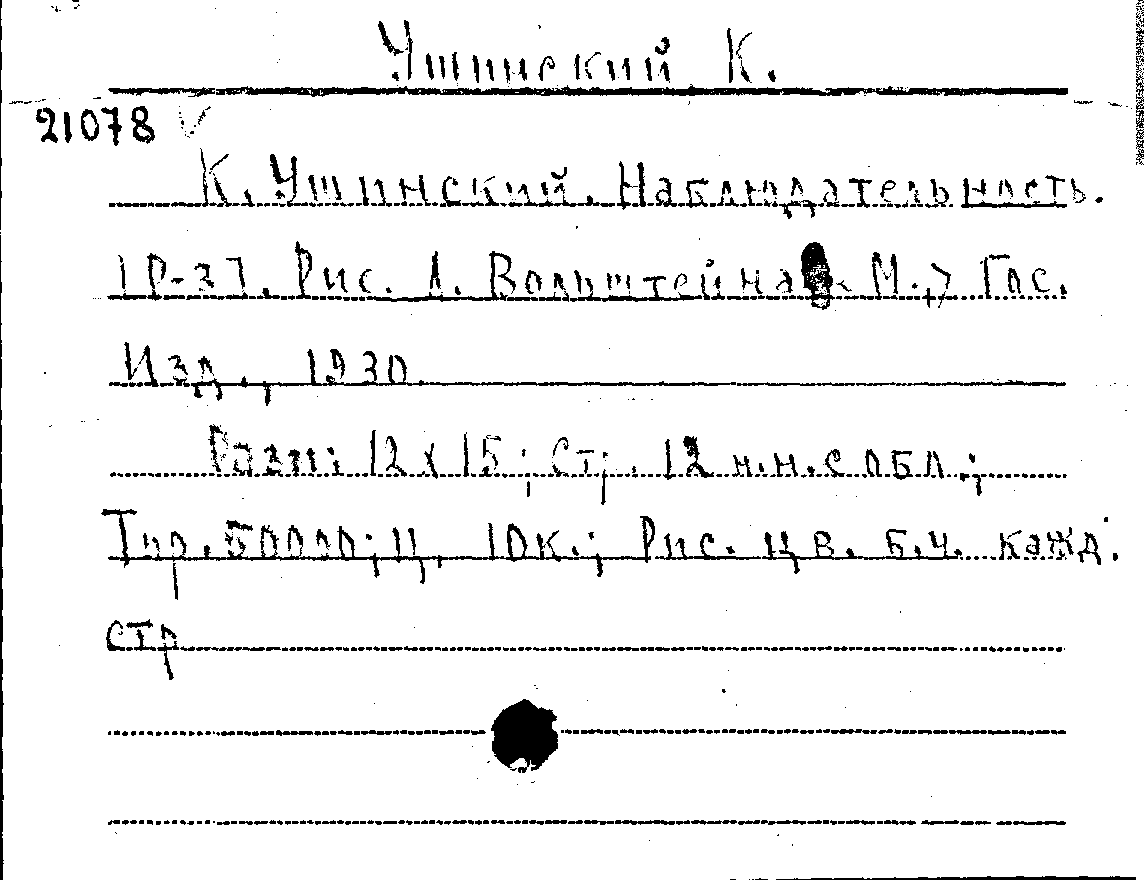 Ушинский К.
21078
К. Ушинский. Наблюдательность.
Рис. А. М., Гос.
Изд., 1930.
Разм; 12 х 15; Стр. 12 н.н. с обл.;
Тир. 50000; ц. 10к.; Рис. цв. б.ч. кажд.
стр